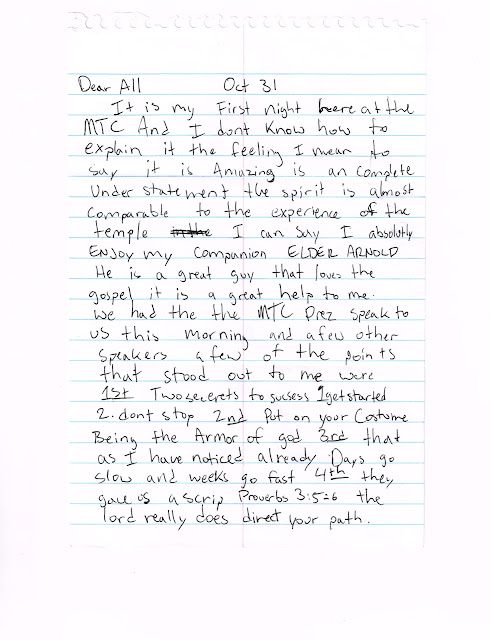 Dear All Oct 31
It is my First night here at the
MTC And I dont Know how to
explain it the feeling I mean to
say it is Amazing is an complete
Under statement the spirit is almost
comparable to the experience of the
temple in the I can say I absolutly
ENJoy my companion ELDER ARNOLD
He is a great guy that loves the
gospel it is a great help to me.
We had the the MTC Prez speak to
us this morning and a few other
speakers a few of the points
that stood out to me were
1st Two secerets to sucsess 1 get started
2. dont stop 2nd Put on your Costume
Being the Armor of god 3rd that
as I have noticed already Days go
slow and weeks go fast 4th they
gave us a scrip Proverbs 3:5-6 the
lord really does direct your path.